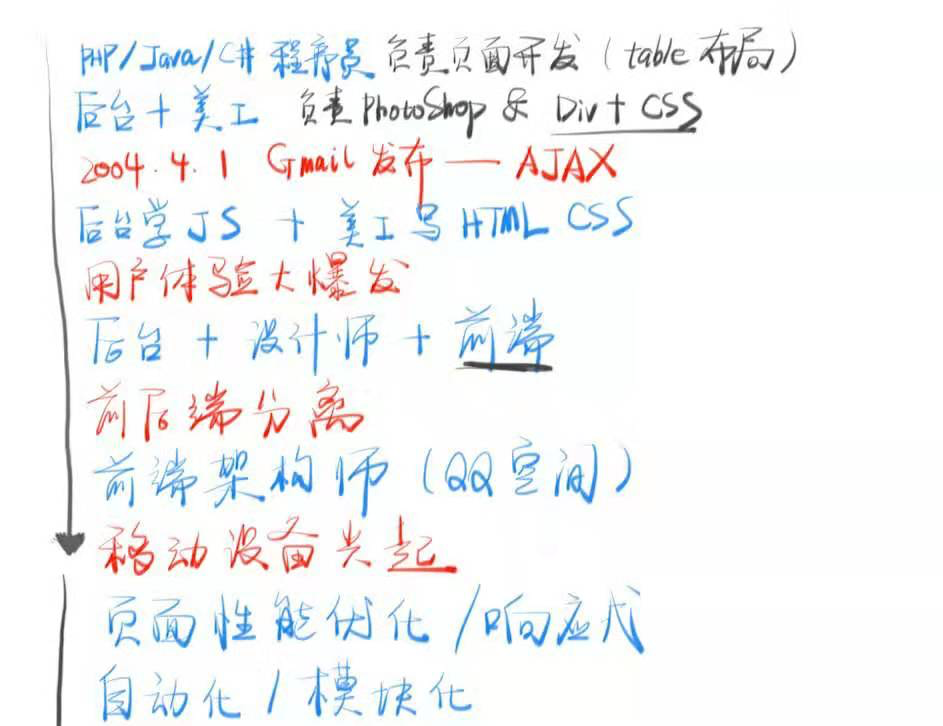 PHP/Java/C# 程序员 负责页面开发（table 布局）
后台 + 美工 负责 PhotoShop & Div + CSS
2004.4.1 Gmail 发布 —— AJAX
后台学 JS + 美工写 HTML CSS
用户体验大爆发
后台 + 设计师 + 前端
前后端分离
前端架构师（QQ空间）
移动设备兴起
页面性能优化 / 响应式
自动化 / 模块化